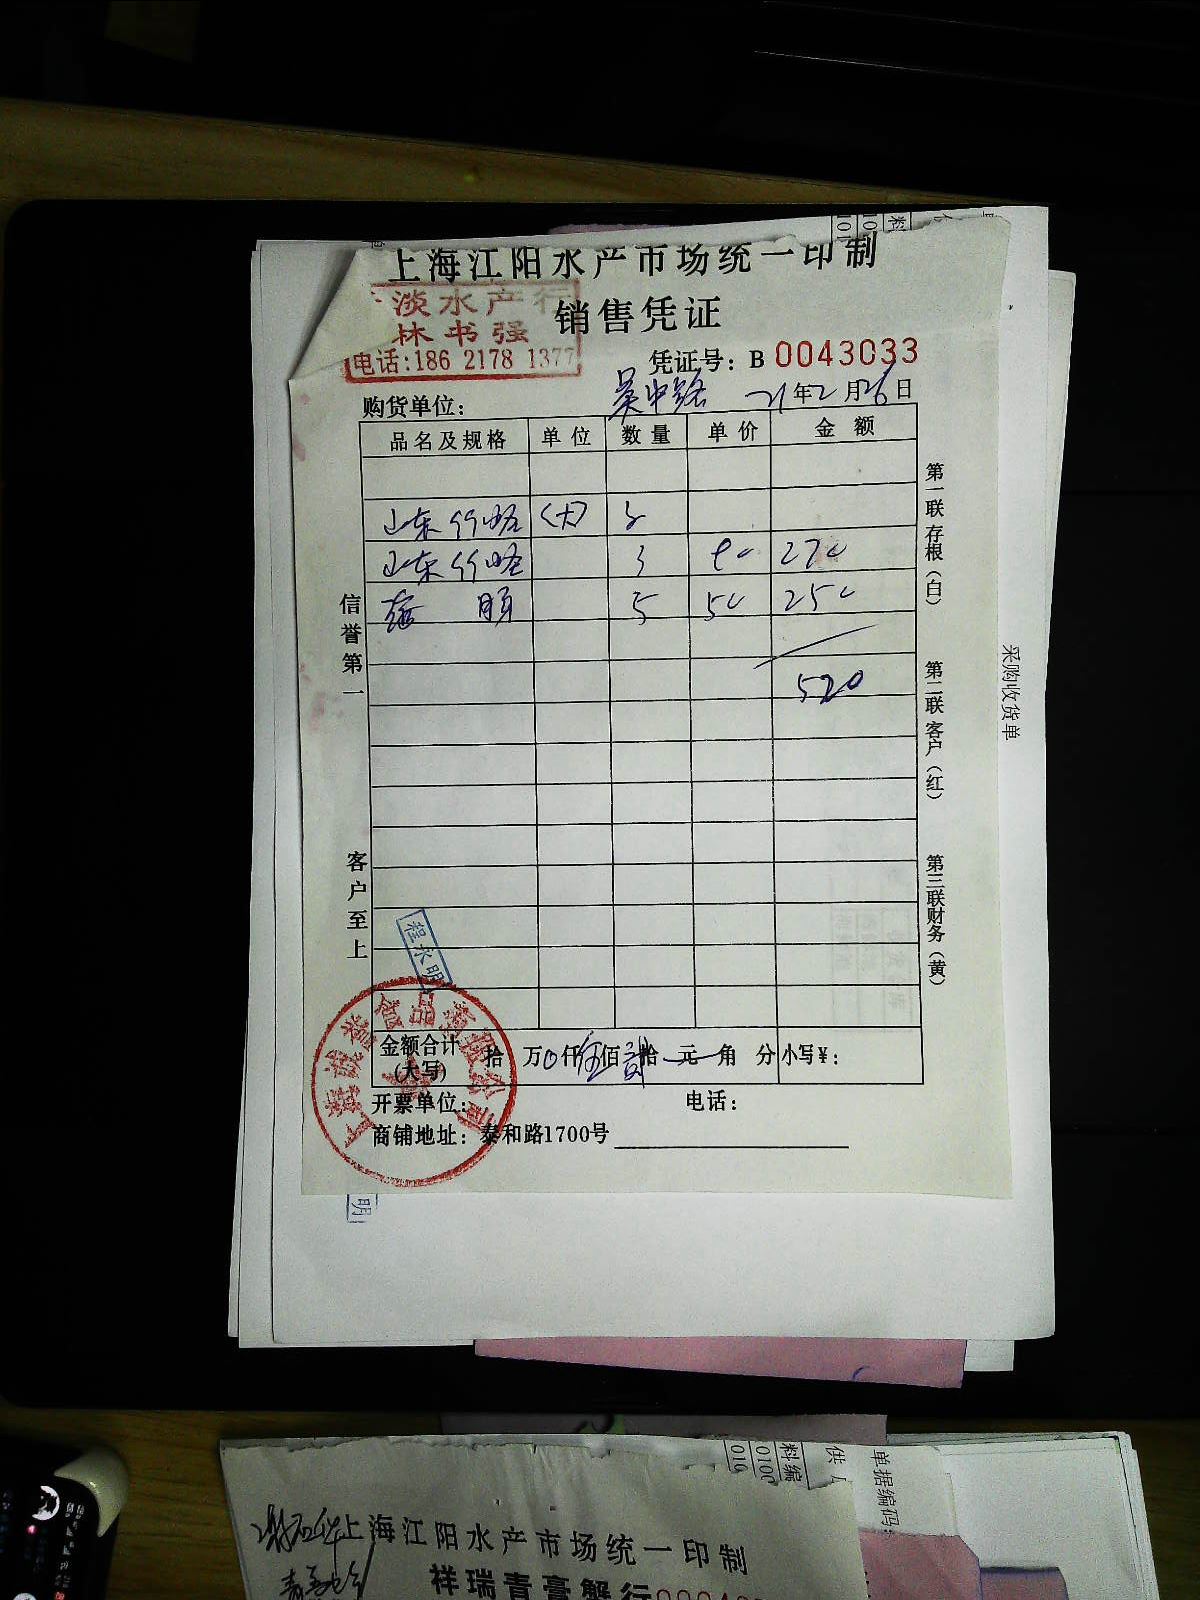 上海江阳水产市场统一印制
淡水产行
林书强
电话:186 2178 1377
销售凭证
凭证号: B 0043033
购货单位: 吴中路 21年2月26日
品名及规格 单位 数量 单价 金额
山东竹蛏 (大)
山东竹蛏 3 90 270
5 50 250
520
金额合计(大写) 拾 万0仟伍佰贰拾元角 分 小写¥:
开票单位: 电话:
商铺地址: 泰和路1700号
信誉第一
客户至上
第一联存根(白)
第二联客户(红)
第三联财务(黄)
程永明
采购收货单
明
料编
0100
010
单据编码:
上海江阳水产市场统一印制
祥瑞青膏蟹行